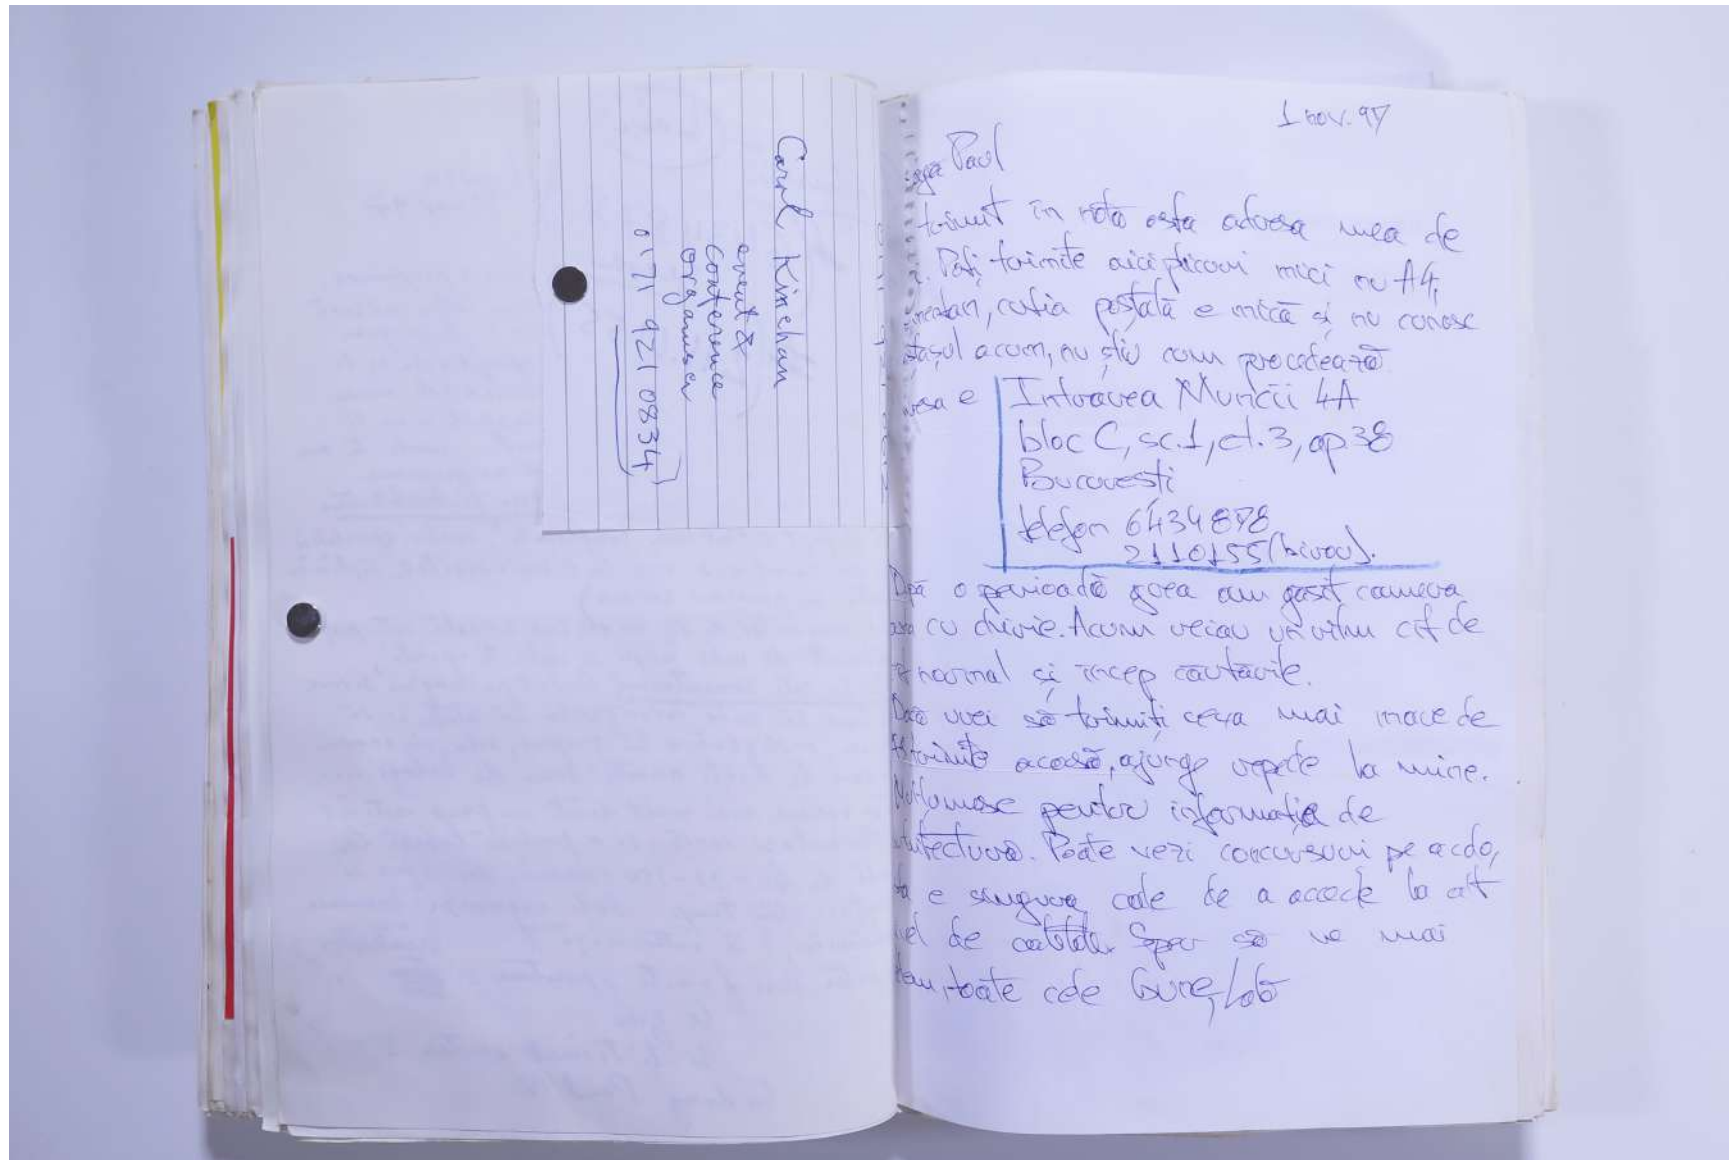 Carol Kinehan
event &
conference
organiser
0171 921 0834
1 nov. 97
Paul
trimit în nota asta adresa mea de
Poți trimite aici plicuri mici nu A4,
cutia poștală e mică și nu conosc
acum, nu știu cum procedează.
e
Intrarea Muncii 4A
bloc C, sc.1, et.3, ap 38
București
telefon 6434878
2110155 (birou).
După o perioadă grea am gasit camera
asta cu chirie. Acum reiau un ritm cît de
normal și încep căutările.
Dacă vrei să trimiți ceva mai mare de
A4 trimite acasă, ajunge repede la mine.
pentru informația de
Poate vezi concursuri pe acolo,
e singura cale de a accede la alt
de calitate. Sper să ne mai
toate cele bune,